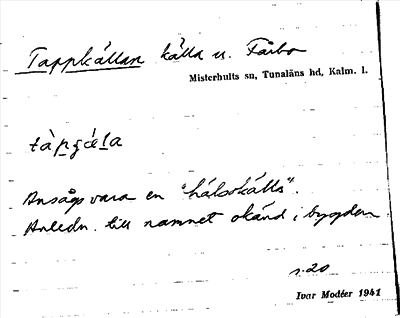 Tappkällan källa v. Fårbo
Misterhults sn, Tunaläns hd, Kalm. l.
tàpɕæla
Ansågs vara en "hälsokälla".
Anledn. till namnet okänd i bygden.
s. 20
Ivar Modéer 1941